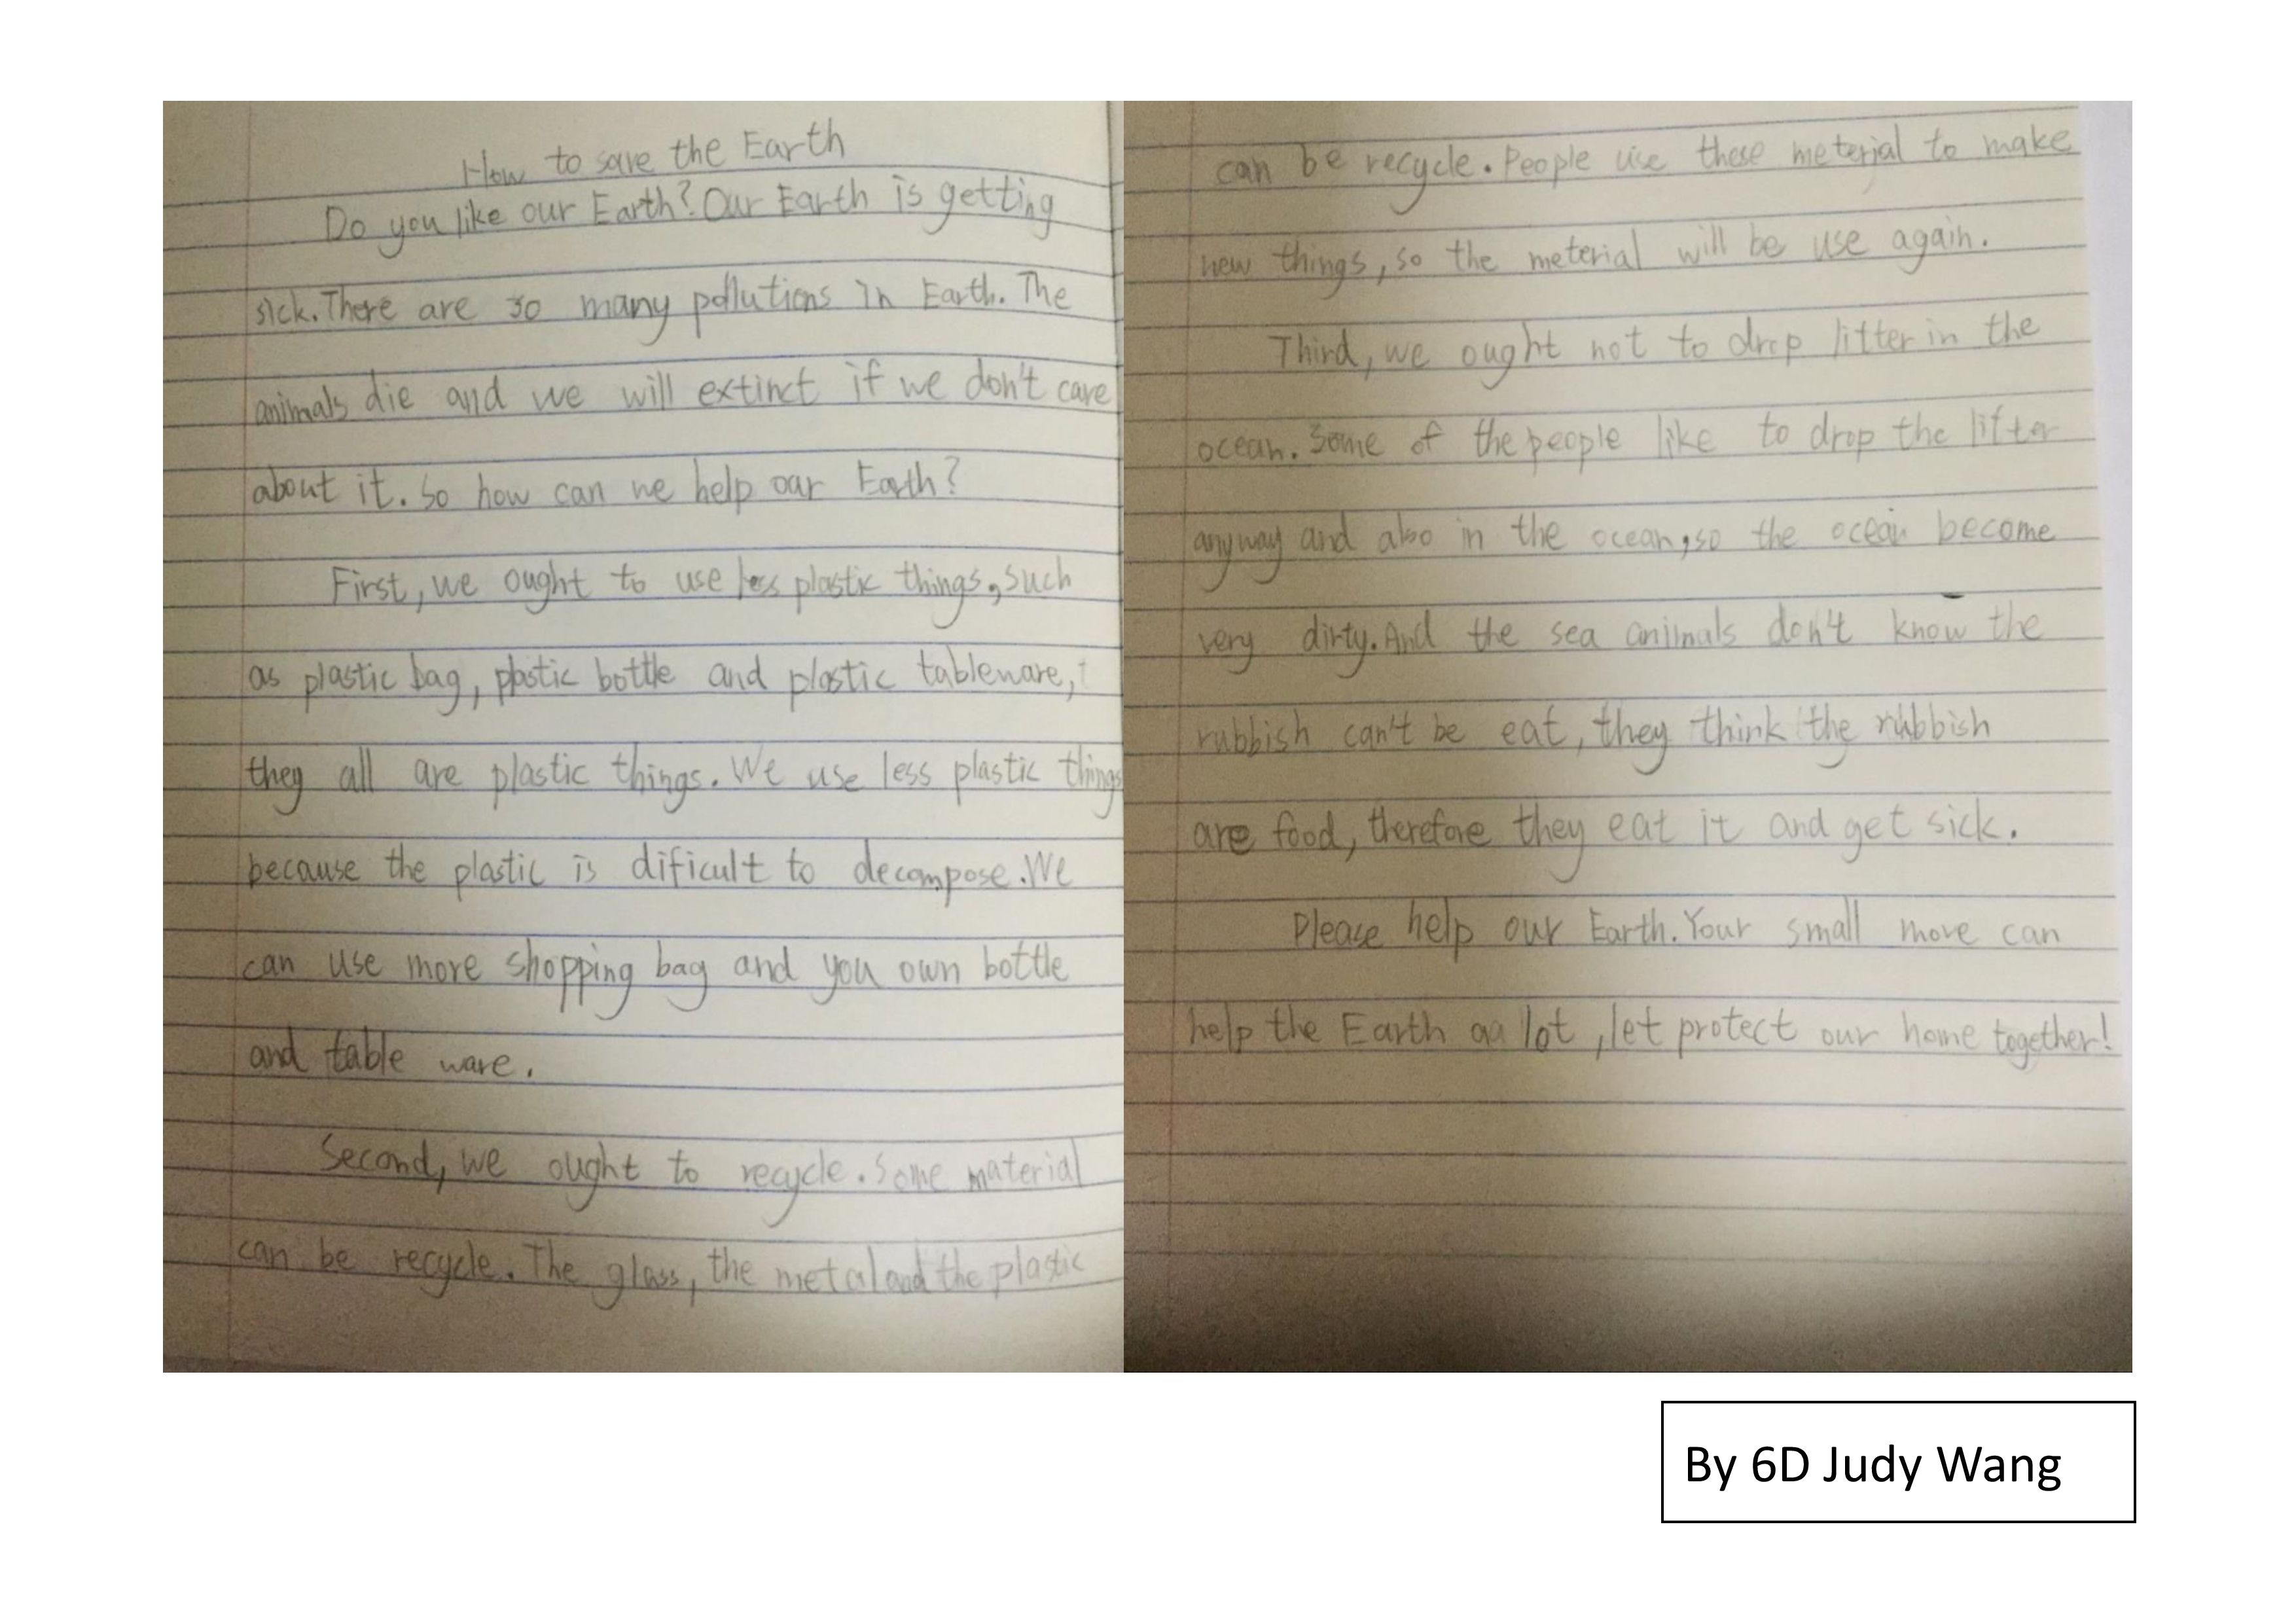 How to save the Earth
Do you like our Earth? Our Earth is getting
sick. There are so many pollutions in Earth. The
animals die and we will extinct if we don't care
about it. So how can we help our Earth?
First, we ought to use less plastic things, such
as plastic bag, plastic bottle and plastic tableware,
they all are plastic things. We use less plastic things
because the plastic is dificult to decompose. We
can use more shopping bag and you own bottle
and table ware.
Second, we ought to recycle. Some material
can be recycle. The glass, the metal and the plastic
can be recycle. People use these meterial to make
new things, so the meterial will be use again.
Third, we ought not to drop litter in the
ocean. Some of the people like to drop the litter
anyway and also in the ocean, so the ocean become
very dirty. And the sea animals don't know the
rubbish can't be eat, they think the rubbish
are food, therefore they eat it and get sick.
Please help our Earth. Your small move can
help the Earth aa lot, let protect our home together!
By 6D Judy Wang